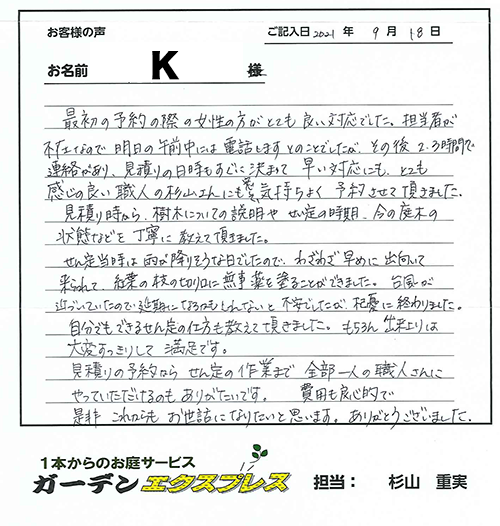 お客様の声
ご記入日 2021 年 9 月 18 日
お名前 K 様
最初の予約の際の女性の方がとても良い対応でした。担当者が
不在なので明日の午前中には電話しますとのことでしたが、その後2.3時間で
連絡があり、見積りの日時もすぐに決まって早い対応にも、とても
感じの良い職人の杉山さんにも気持ちよく予約させて頂きました。
見積り時から、樹木についての説明やせん定の時期、今の庭木の
状態などを丁寧に教えて頂きました。
せん定当時は雨が降りそうな日でしたので、わざわざ早めに出向いて
来られて、紅葉の枝の切り口に無事薬を塗ることができました。台風が
近づいていたので延期になるかもしれないと不安でしたが、杞憂に終わりました。
自分でもできるせん定の仕方も教えて頂きました。もちろん出来上りは
大変すっきりして満足です。
見積りの予約からせん定の作業まで全部一人の職人さんに
やっていただけるのもありがたいです。 費用も良心的で
是非これからもお世話になりたいと思います。ありがとうございました。
1本からのお庭サービス
ガーデンエクスプレス 担当: 杉山 重実